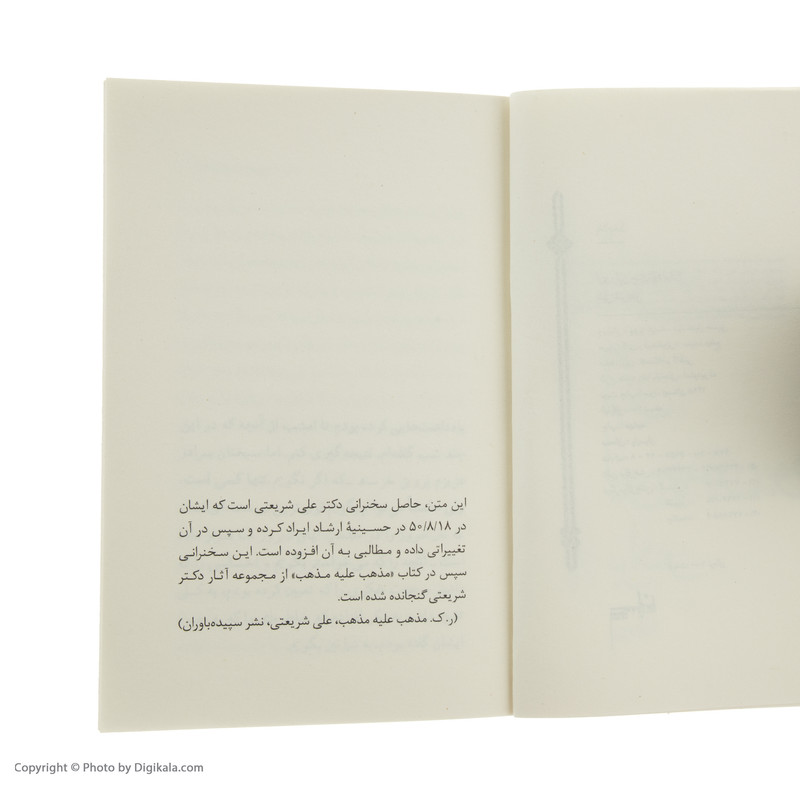 این متن، حاصل سخنرانی دکتر علی شریعتی است که ایشان
در ۵۰/۸/۱۸ در حسینیهٔ ارشاد ایراد کرده و سپس در آن
تغییراتی داده و مطالبی به آن افزوده است. این سخنرانی
سپس در کتاب «مذهب علیه مذهب» از مجموعه آثار دکتر
شریعتی گنجانده شده است.
(ر.ک. مذهب علیه مذهب، علی شریعتی، نشر سپیده‌باوران)
Copyright © Photo by Digikala.com